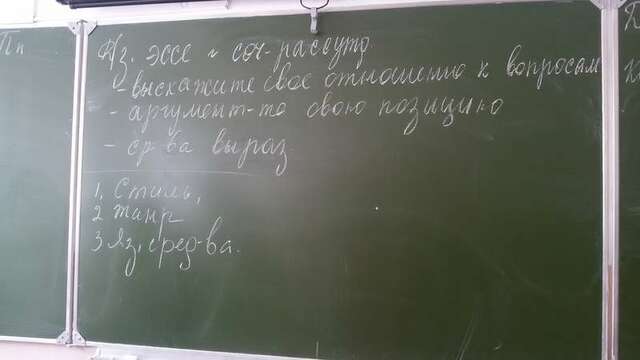 Пп
Д/з. эссе и соч-рассужд
- выскажите своё отношение к вопросам
- аргумент-те свою позицию
- ср-ва выраз.
1. Стиль,
2 жанр
3 Яз. сред-ва.